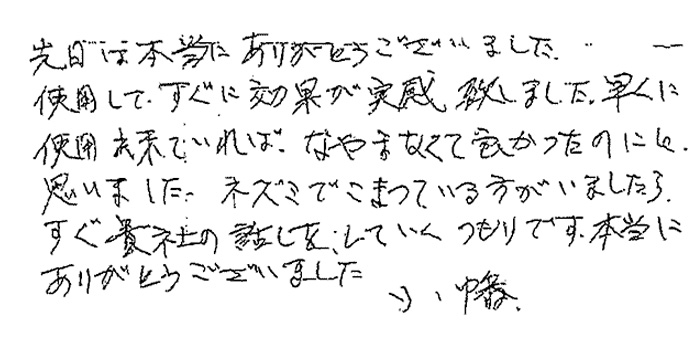 先日は本当にありがとうございました.
使用して、すぐに効果が実感致しました.早くに
使用出来ていれば、なやまなくて良かったのにと、
思いました。ネズミでこまっている方がいましたら、
すぐ貴社の話しをしていくつもりです.本当に
ありがとうございました